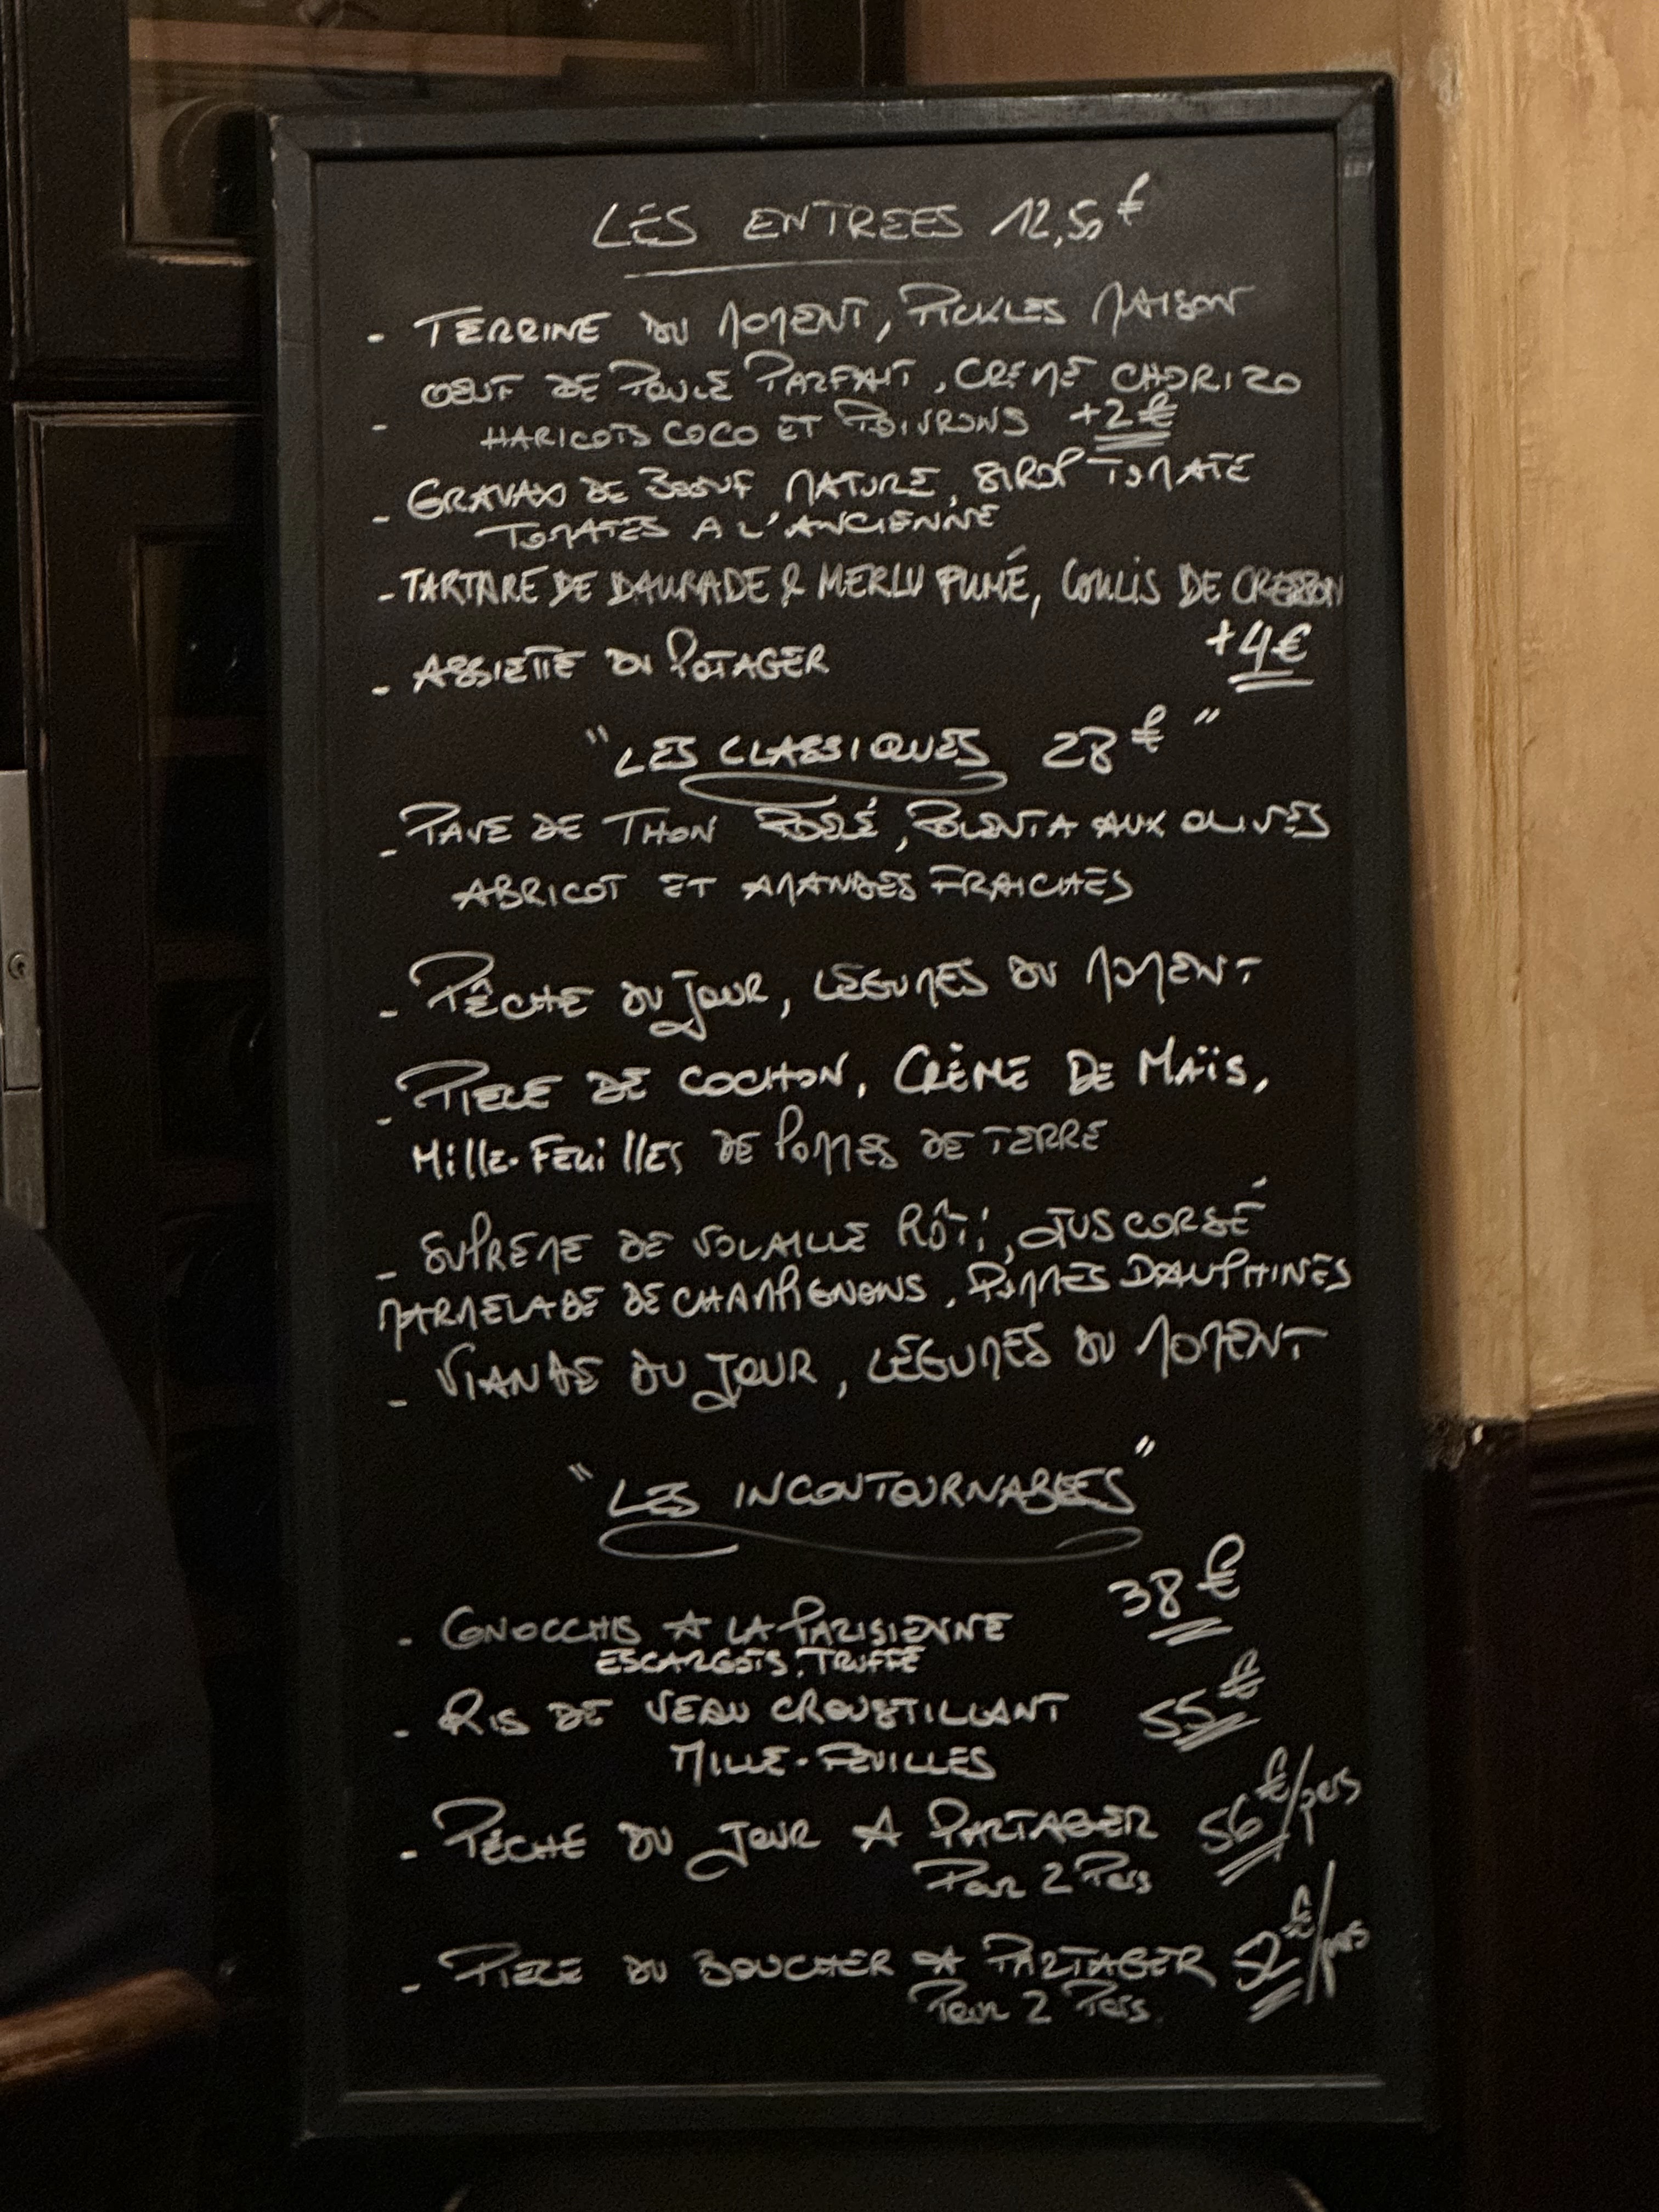 LES ENTREES 12,50€
- TERRINE DU MOMENT, PICKLES MAISON
- OEUF DE POULE PARFAIT, CREME CHORIZO
HARICOTS COCO ET POIVRONS +2€
- GRAVAX DE BOEUF MATURE, SIROP TOMATE
TOMATES A L'ANCIENNE
- TARTARE DE DAURADE & MERLU FUMÉ, COULIS DE CRESSON
+4€
- ASSIETTE DU POTAGER
"LES CLASSIQUES 28€"
- PAVE DE THON POELÉ, POLENTA AUX OLIVES
ABRICOT ET AMANDES FRAICHES
- PÊCHE DU JOUR, LEGUMES DU MOMENT
- PIECE DE COCHON, CRÈME DE MAÏS,
MILLE-FEUILLES DE POMMES DE TERRE
- SUPREME DE VOLAILLE RÔTI, JUS CORSÉ
MARMELADE DE CHAMPIGNONS, POMMES DAUPHINES
- VIANDE DU JOUR, LÉGUMES DU MOMENT
"LES INCONTOURNABLES"
- GNOCCHIS A LA PARISIENNE 38€
ESCARGOTS, TRUFFE
- RIS DE VEAU CROUSTILLANT 55€
MILLE-FEUILLES
- PÊCHE DU JOUR A PARTAGER 56€/pers
Pour 2 Pers
- PIECE DU BOUCHER A PARTAGER 52€/pers
Pour 2 Pers.